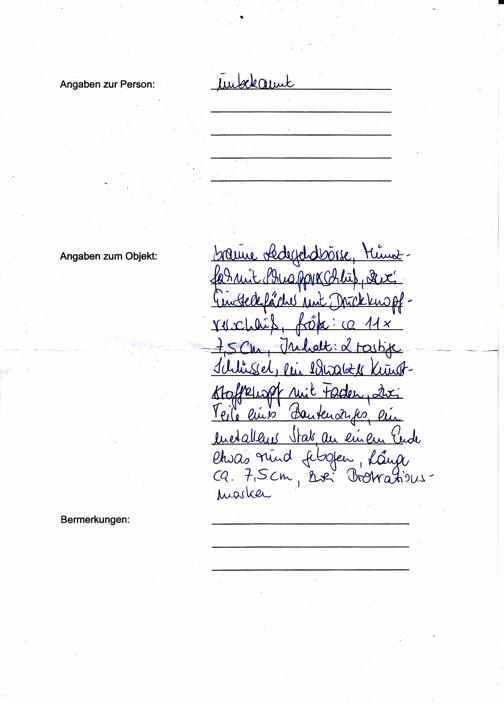 Angaben zur Person: unbekannt
Angaben zum Objekt: braune Ledergeldbörse, Münz-
fach mit Schnappverschluß, zwei
Einsteckfächer mit Druckknopf-
verschluß, Größe: ca 11x
7,5 cm, Inhalt: 2 rostige
Schlüssel, ein schwarzer Kunst-
stoffknopf mit Faden, zwei
Teile eines ein
metallener Stab, an einem Ende
etwas rund gebogen, Länge
ca. 7,5 cm, zwei
marken
Bermerkungen: